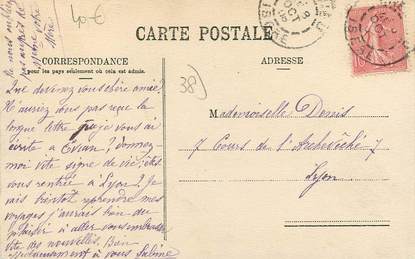 40 €
Je vous oubliez
pas auprès de
Mère
CARTE POSTALE
CORRESPONDANCE
Pour les pays seulement où cela est admis.
ADRESSE
38)
Que devenez vous chère amie?
N'auriez vous pas reçu la
longue lettre que je vous ai
écrite à Evian? Donnez-
moi vite signe de vie, êtes
vous rentrée à Lyon? Je
vais bientôt reprendre mes
voyages j'aurais bien du
plaisir à aller vous embrasser
vite des nouvelles. Bien
à vous Sabine
Mademoiselle Denis
7 Cours de l'Archevêché 7
Lyon